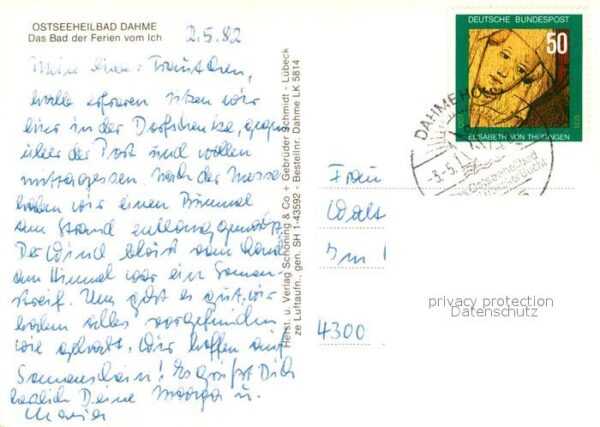 OSTSEEHEILBAD DAHME
Das Bad der Ferien vom Ich
2.5.82
Meine liebe Trautchen,
halb erfroren sitzen wir
hier in der Dorfschenke, gegen
über der Post und wollen
mittagessen. Nach der Messe
haben wir einen Bummel
am Strand entlang gemacht.
Der Wind bläst vom Land
am Himmel war ein Sonnen-
streif. Uns geht es gut, wir
haben alles vorgefunden
wie gehabt. Wir hoffen auf
Sonnenschein! Es grüßt Dich
herzlich Deine Marga u.
Maria
Herst. u. Verlag Schöning & Co + Gebrüder Schmidt - Lübeck
ze Luftaufn., gen. SH 1-43592 - Bestellnr. Dahme LK 5814
DEUTSCHE BUNDESPOST
50
ELISABETH VON THÜRINGEN
1231
DAHME
-3.-5.
Ostseeheilbad
Frau
Walt
Im
4300
privacy protection
Datenschutz